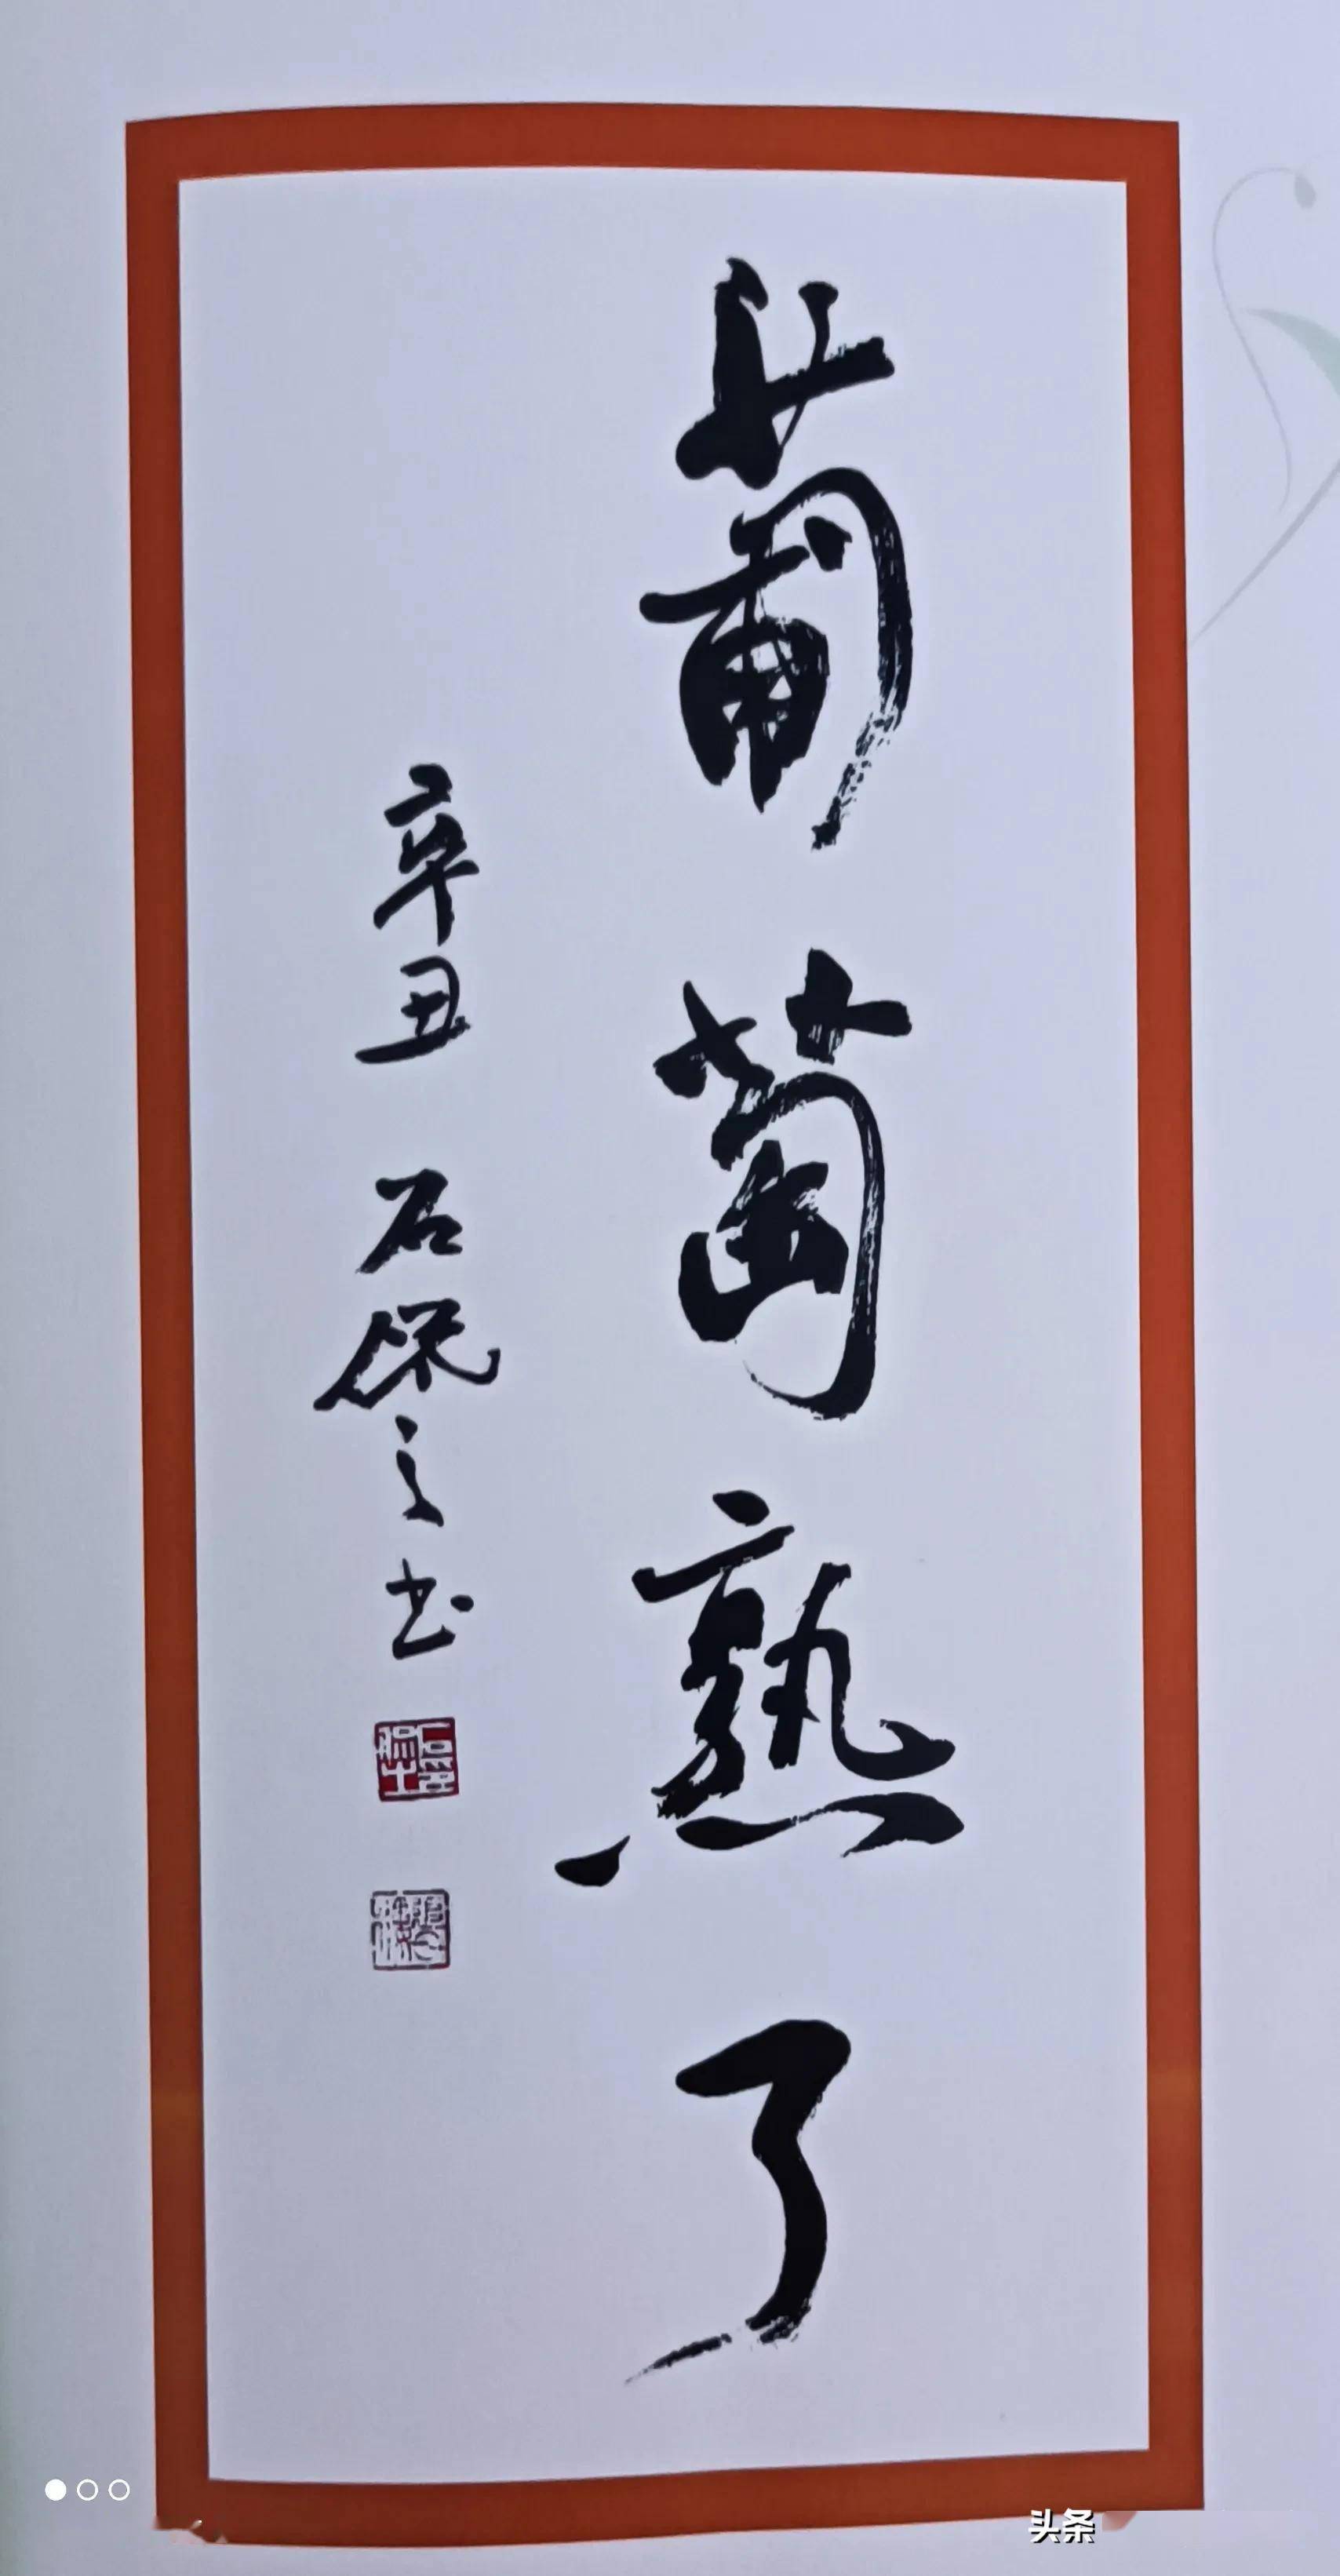 葡萄熟了
辛丑 石 之书
头条